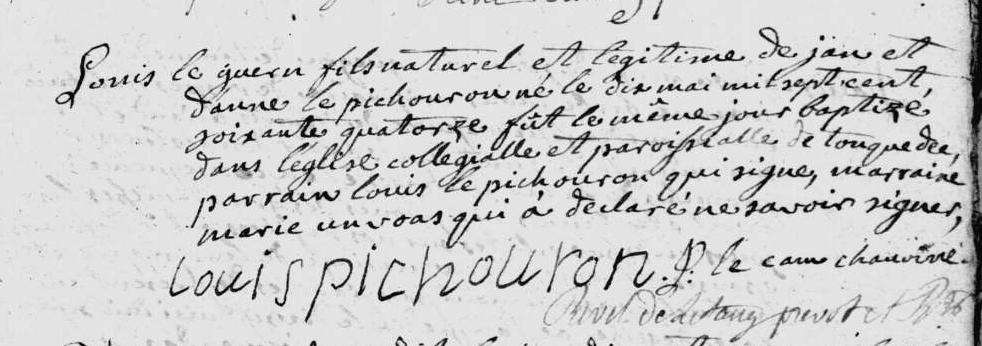 Louis le guern fils naturel et legitime de jan et
d'anne le pichouron né le dix mai mil sept cent,
soixante quatorze fût le même jour baptizé
dans l'église collégialle et paroissialle de tonquedec,
parrain louis le pichouron qui signe, marraine
marie unvoas qui à déclaré ne savoir signer,
louis pichouron. le cam chanoine.
prevot et